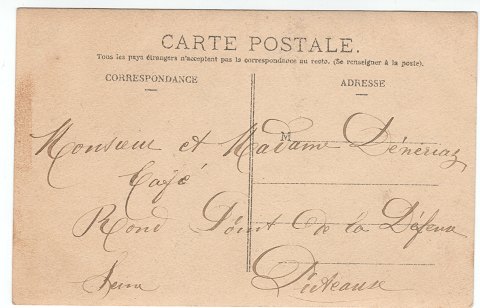 CARTE POSTALE.
Tous les pays étrangers n'acceptent pas la correspondance au recto. (Se renseigner à la poste).
CORRESPONDANCE
ADRESSE
M
Monsieur et Madame Dénériaz
Café
Rond Point de la Défense
Seine Puteaux